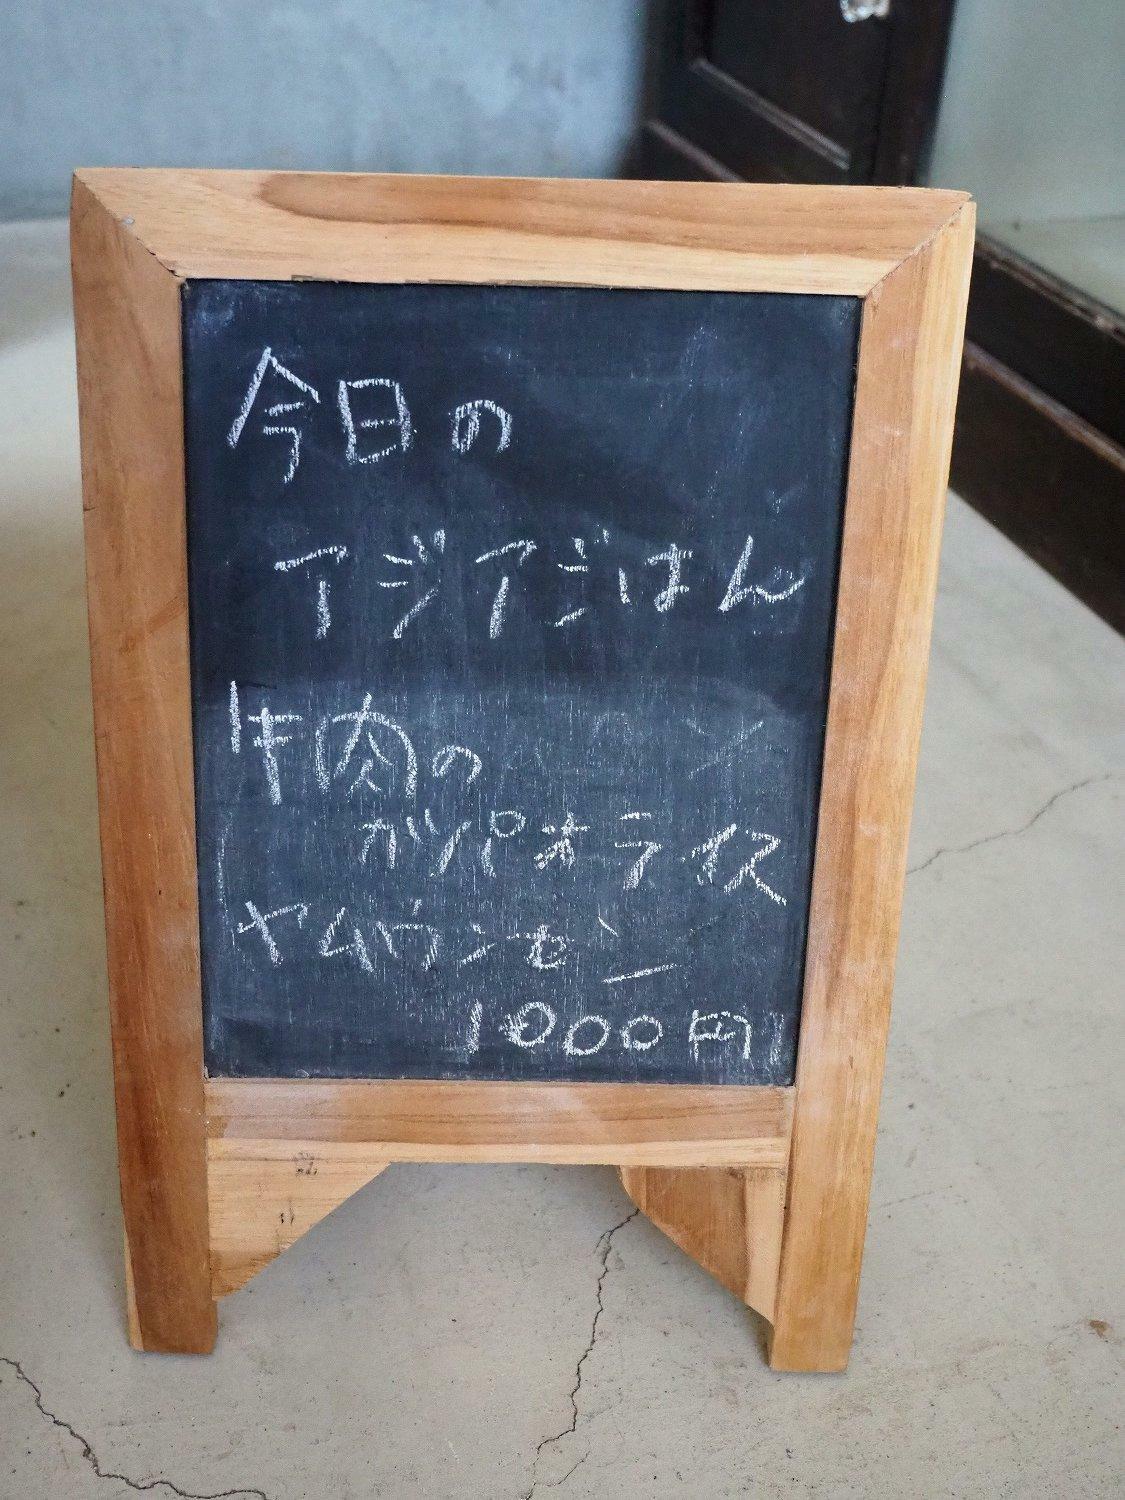 今日の
アジアジはん
牛肉の
ガパオライス
ヤムウンセン
1000円